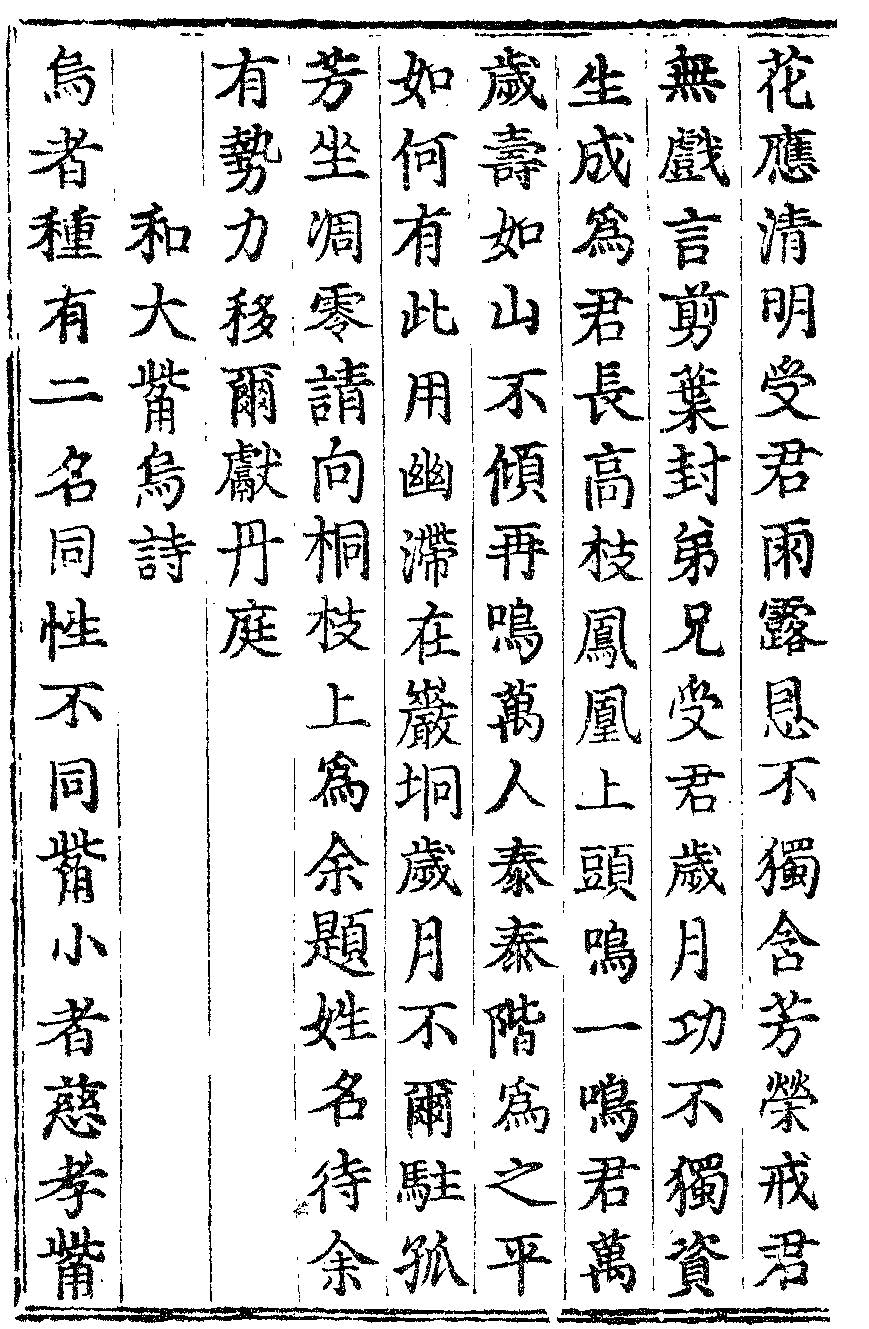 花應清明受君雨露恩不獨含芳榮戒君
無戲言剪葉封弟兄受君歲月功不獨資
生成爲君長高枝鳳凰上頭鳴一鳴君萬
歲壽如山不傾再鳴萬人泰泰階爲之平
如何有此用幽滯在巖坰歲月不爾駐孤
芳坐凋零請向桐枝上爲余題姓名待余
有勢力移爾獻丹庭
和大觜烏詩
烏者種有二名同性不同觜小者慈孝觜